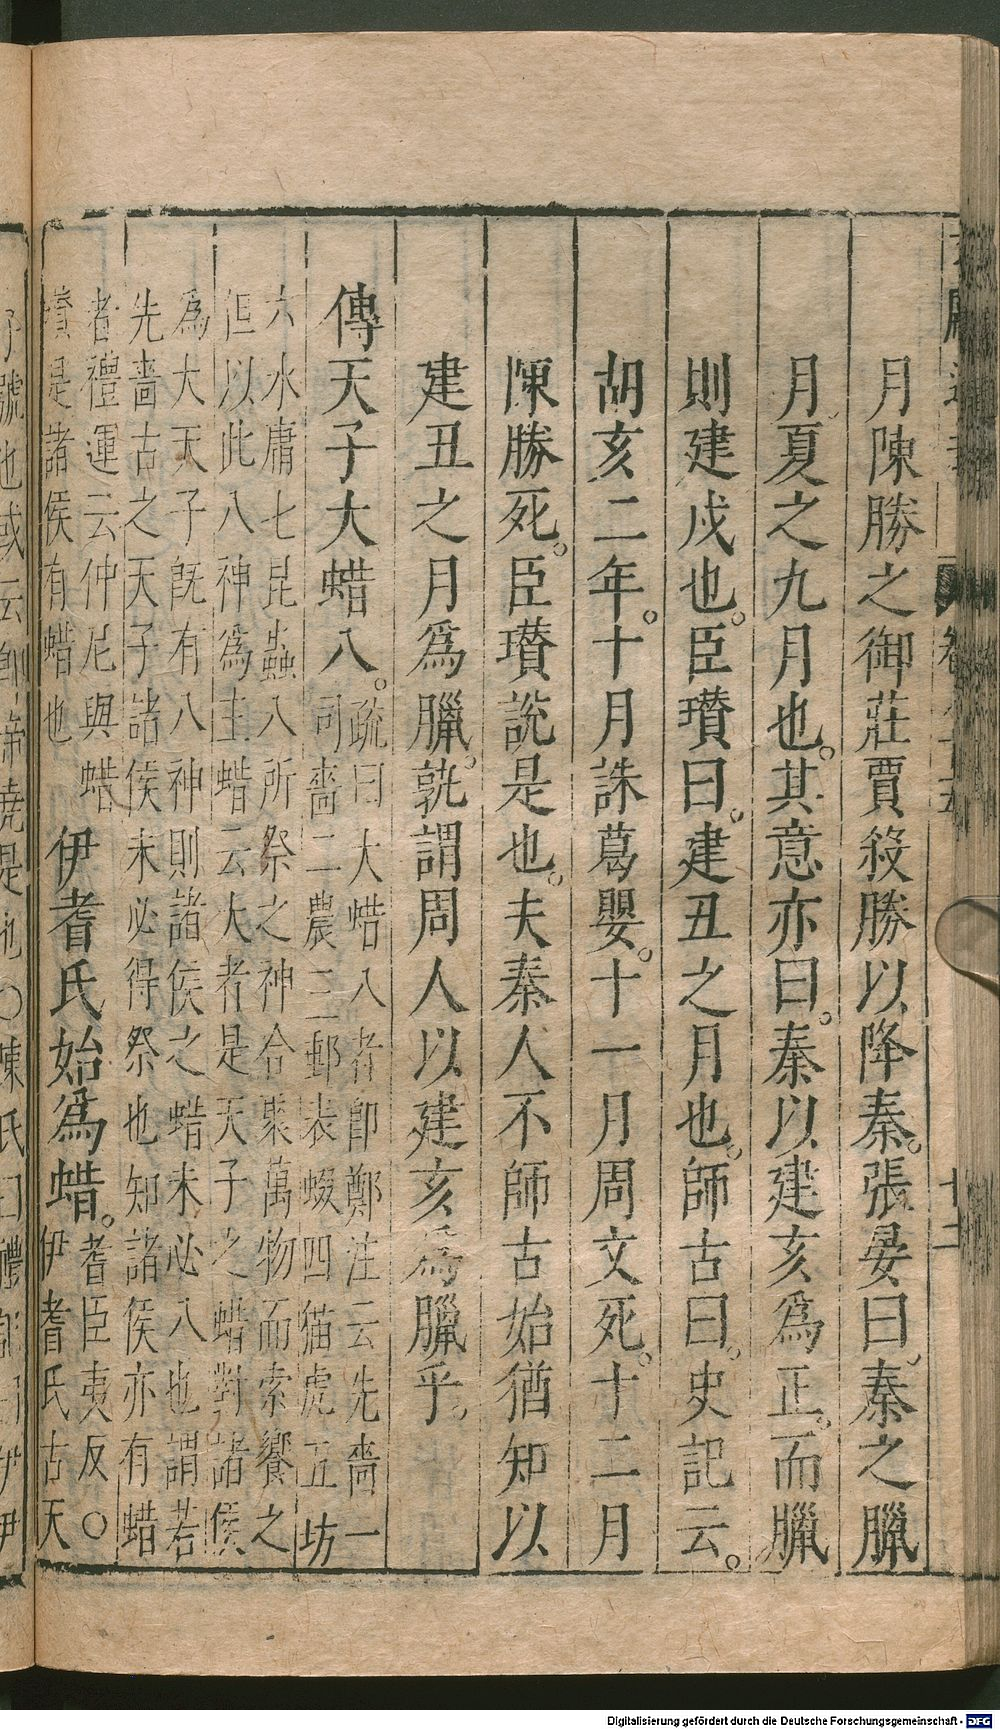 月陳勝之御莊賈殺勝以降秦。張晏曰。秦之臘
月夏之九月也。其意亦曰。秦以建亥爲正。而臘
則建戌也。臣瓚曰。建丑之月也。師古曰。史記云。
胡亥二年。十月誅葛嬰。十一月周文死。十二月
陳勝死。臣瓚說是也。夫秦人不師古始猶知以
建丑之月爲臘。孰謂周人以建亥爲臘乎。
傳天子大蜡八。
疏曰大蜡八者卽鄭注云先嗇一
司嗇二農三郵表畷四猫虎五坊
六水庸七昆蟲八所祭之神合聚萬物而索饗之
但以此八神爲主蜡云大者是天子之蜡對諸侯
爲大天子旣有八神則諸侯之蜡未必八也謂若
先嗇古之天子諸侯未必得祭也知諸侯亦有蜡
者禮運云仲尼與蜡
賓是諸侯有蜡也
伊耆氏始爲蜡。
耆臣夷反○
伊耆氏古天
子號也或云卽帝堯是也○陳氏曰禮
Digitalisierung gefördert durch die Deutsche Forschungsgemeinschaft - DFG